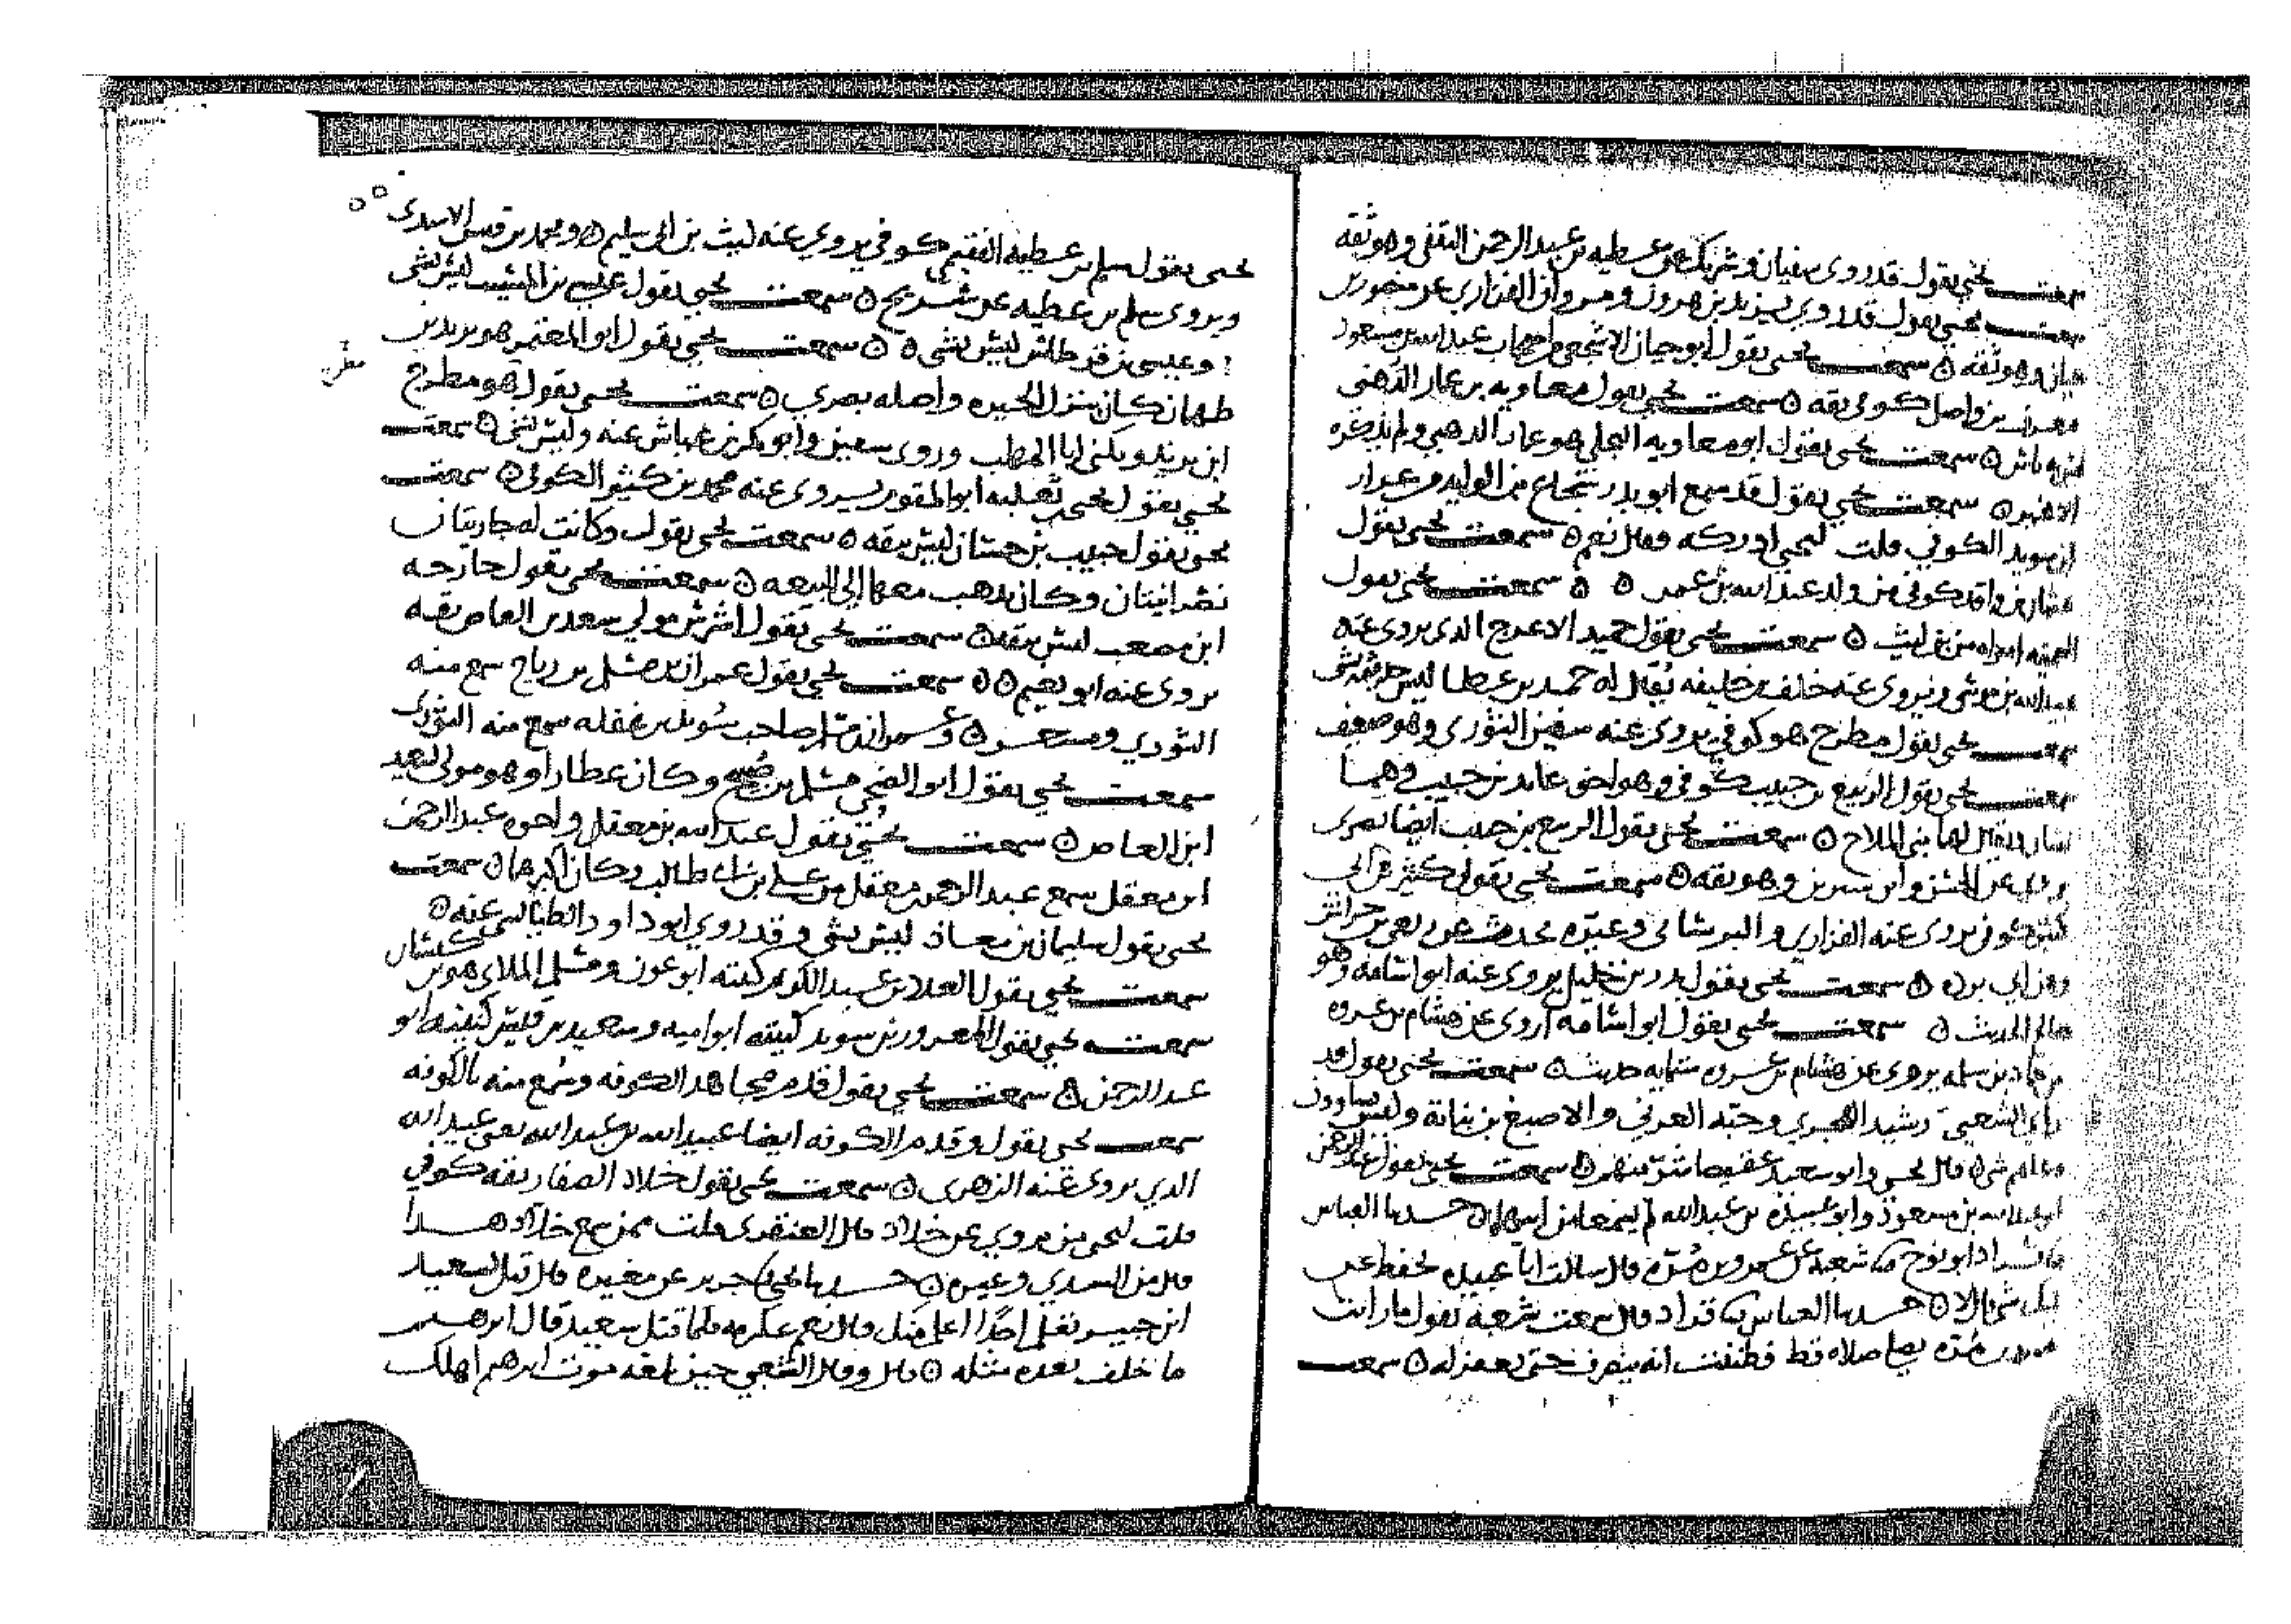 سمعت يحيى يقول قد روى سفيان وشريك عن عطيه بن عبد الرحمن الثقفي وهو ثقه
سمعت يحيى يقول قد روى يزيد بن هرون ومروان الفزاري عن منصور بن
حيان وهو ثقه ه سمعت يحيى يقول ابو حيان الاشجعي من اصحاب عبد الله بن مسعود
معرف بن واصل كوفي ثقه ه سمعت يحيى يقول معاويه بن عمار الدهني
ليس به باس ه سمعت يحيى يقول ابو معاويه البجلي هو عمار الدهني ولم
ه سمعت يحيى يقول قد سمع ابو بدر شجاع بن الوليد من
بن سويد الكوفي قلت ليحيى ادركه فقال نعم ه سمعت يحيى يقول
بن واقد كوفي من ولد عبد الله بن عمر ه ه سمعت يحيى يقول
امراه من بني ليث ه سمعت يحيى يقول حميد الاعرج الذي يروي عنه
عبيد الله بن موسى ويروي عنه خلف بن خليفه يقال له حميد بن عطا ليس حديثه بشي
سمعت يحيى يقول مطرح هو كوفي يروي عنه سفين الثوري وهو ضعيف
سمعت يحيى يقول الربيع بن حبيب كوفي وهو اخو عايد بن حبيب وهما
يقال لهما بني الملاح ه سمعت يحيى يقول الربيع بن حبيب ايضا بصري
يروي عن الحسن وابن سيرين وهو ثقه ه سمعت يحيى يقول كثير
كوفي يروي عنه الفزاري و وغيره يحدث عن ربعي بن حراش
وعن ابي ه سمعت يحيى يقول بدر بن خليل يروي عنه ابو اسامه وهو
صالح الحديث ه سمعت يحيى يقول ابو اسامه اروى عن هشام بن عروه
من حماد بن سلمه يروي عن هشام بن عروه ستمايه حديث ه سمعت يحيى يقول قد
راى الشعبي رشيد الهجري وحبه العرني والاصبغ بن نباتة وليس يساوون
كلهم شي ه قال يحيى وابو سعيد عقيصا شر منهم ه سمعت يحيى يقول عبد الرحمن
بن عبد الله بن مسعود وابو عبيده بن عبد الله لم يسمعا من ابيهما ه حدثنا العباس
قراد ابو نوح شعبة عن عمرو بن مره قال سالت ابا عبيده تحفظ عن
ابيك شي قال لا ه حدثنا العباس قراد قال سمعت شعبة يقول ما رايت
عمرو بن مره يصلي صلاه قط فظننت انه ينصرف حتى يغفر له ه سمعت
يحيى يقول سلم بن عطيه الفقيمي كوفي يروي عنه ليث بن ابي سليم ه ومحمد بن قيس الاسدي
ويروي سلم بن عطيه عن شريح ه سمعت يحيى يقول عيسى بن المسيب ليس بشي
وعيسى بن قرطاس ليس بشي ه ه سمعت يحيى يقول ابو المعتمر هو يزيد بن
طهمان كان ينزل الحيره واصله بصري ه سمعت يحيى يقول هو مطرح
ابن يزيد ويكنى ابا المهلب وروى سفين وابو بكر بن عياش عنه وليس بشي ه سمعت
يحيى يقول يحيى ثعلبه ابو المقوم يروي عنه محمد بن كثير الكوفي ه سمعت
يحيى يقول حبيب بن حسان ليس بثقه ه سمعت يحيى يقول وكانت له جاريتان
نصرانيتان وكان يذهب معهما الى البيعه ه سمعت يحيى يقول خارجه
ابن مصعب ليس بثقه ه سمعت يحيى يقول اشرس مولى سعد بن العاص ثقه
يروي عنه ابو نعيم ه ه سمعت يحيى يقول عمران بن مسلم بن رياح سمع منه
الثوري ومسعر ه وعمران بن مسلم صاحب سويد بن غفله سمع منه الثوري
سمعت يحيى يقول ابو الضحى مسلم بن صبيح وكان عطارا وهو مولى لسعيد
ابن العاص ه سمعت يحيى يقول عبد الله بن معقل واخوه عبد الرحمن
ابن معقل سمع عبد الرحمن بن معقل من علي بن ابي طالب وكان اكبرهما ه سمعت
يحيى يقول سليمان بن معاذ ليس بشي وقد روى ابو داود الطيالسي عنه ه
سمعت يحيى يقول العلا بن عبد الكريم كنيته ابو عون ومسلم الملائي هو بن كيسان
سمعت يحيى يقول المعرور بن سويد كنيته ابو اميه وسعيد بن قيس كنيته ابو
عبد الرحمن ه سمعت يحيى يقول قدم مجاهد الكوفه وسمع منه بالكوفه
سمعت يحيى يقول وقدم الكوفه ايضا عبيد الله بن عبد الله يعني عبيد الله
الذي يروي عنه الزهري ه سمعت يحيى يقول خلاد الصفار ثقه كوفي
قلت ليحيى من يروي عن خلاد قال العنقزي قلت ممن سمع خلاد هذا
قال من السدي وغيره ه حدثنا يحيى جرير عن مغيره قال قيل لسعيد
ابن جبير تعلم احدا اعلم منك قال نعم عكرمه فلما قتل سعيد قال ابرهيم
ما خلف بعده مثله ه قال وقال الشعبي حين بلغه موت ابرهيم اهلك